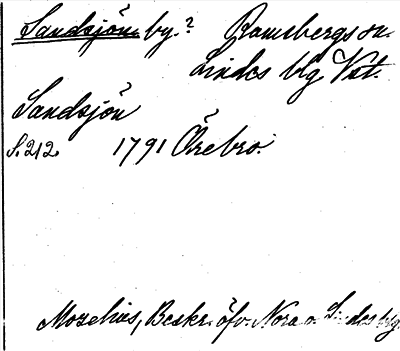 Sandsjön by.? Ramsbergs sn.
Lindes blg Vst.
Sandsjön
S. 212. 1791 Örebro.
Mozelius, Beskr. öfv. Nora o. L des blg.